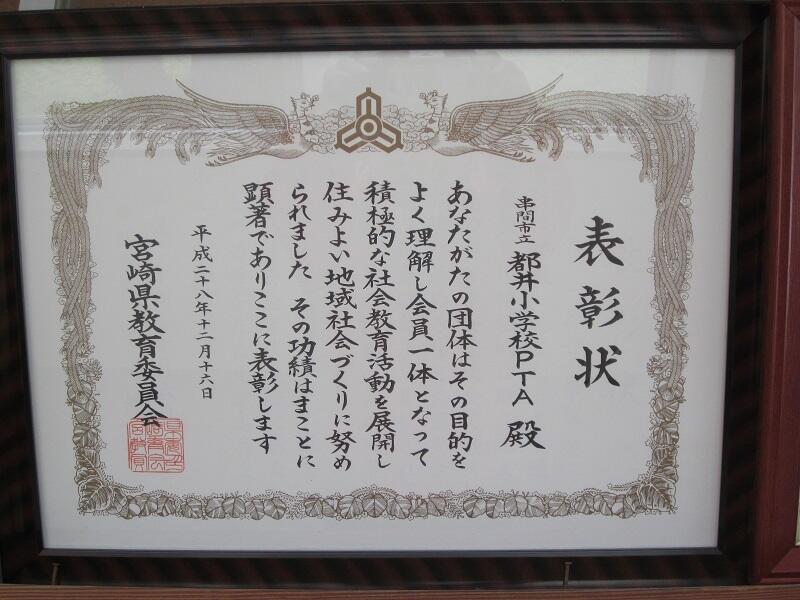 表彰状
串間市立 都井小学校PTA 殿
あなたがたの団体はその目的を
よく理解し会員一体となって
積極的な社会教育活動を展開し
住みよい地域社会づくりに努め
られました その功績はまことに
顕著でありここに表彰します
平成二十八年十二月十六日
宮崎県教育委員会